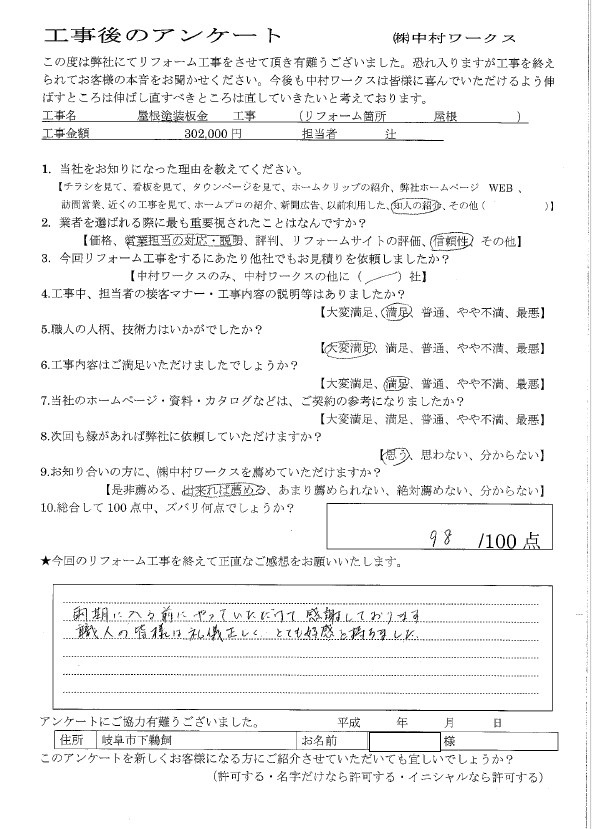 工事後のアンケート　㈱中村ワークス
この度は弊社にてリフォーム工事をさせて頂き有難うございました。恐れ入りますが工事を終え
られてお客様の本音をお聞かせください。今後も中村ワークスは皆様に喜んでいただけるよう伸
ばすところは伸ばし直すべきところは直していきたいと考えております。
工事名　屋根塗装板金　工事　(リフォーム箇所　屋根　)
工事金額　302,000円　担当者　辻
1. 当社をお知りになった理由を教えてください。
【チラシを見て、看板を見て、タウンページを見て、ホームクリップの紹介、弊社ホームページ　WEB、
訪問営業、近くの工事を見て、ホームプロの紹介、新聞広告、以前利用した、知人の紹介、その他(　)】
2. 業者を選ばれる際に最も重要視されたことはなんですか?
【価格、営業担当の対応・説明、評判、リフォームサイトの評価、信頼性、その他】
3. 今回リフォーム工事をするにあたり他社でもお見積りを依頼しましたか?
【中村ワークスのみ、中村ワークスの他に(　)社】
4.工事中、担当者の接客マナー・工事内容の説明等はありましたか?
【大変満足、満足、普通、やや不満、最悪】
5.職人の人柄、技術力はいかがでしたか?
【大変満足、満足、普通、やや不満、最悪】
6.工事内容はご満足いただけましたでしょうか?
【大変満足、満足、普通、やや不満、最悪】
7.当社のホームページ・資料・カタログなどは、ご契約の参考になりましたか?
【大変満足、満足、普通、やや不満、最悪】
8.次回も縁があれば弊社に依頼していただけますか?
【思う、思わない、分からない】
9.お知り合いの方に、㈱中村ワークスを薦めていただけますか?
【是非薦める、出来れば薦める、あまり薦められない、絶対薦めない、分からない】
10.総合して100点中、ズバリ何点でしょうか?
98 /100点
★今回のリフォーム工事を終えて正直なご感想をお願いいたします。
雨期に入る前にやっていただけて 感謝しております
職人の皆様は礼儀正しく とても好感と持ちました
アンケートにご協力有難うございました。　平成　年　月　日
住所　岐阜市下鵜飼　お名前　様
このアンケートを新しくお客様になる方にご紹介させていただいても宜しいでしょうか?
(許可する・名字だけなら許可する・イニシャルなら許可する)